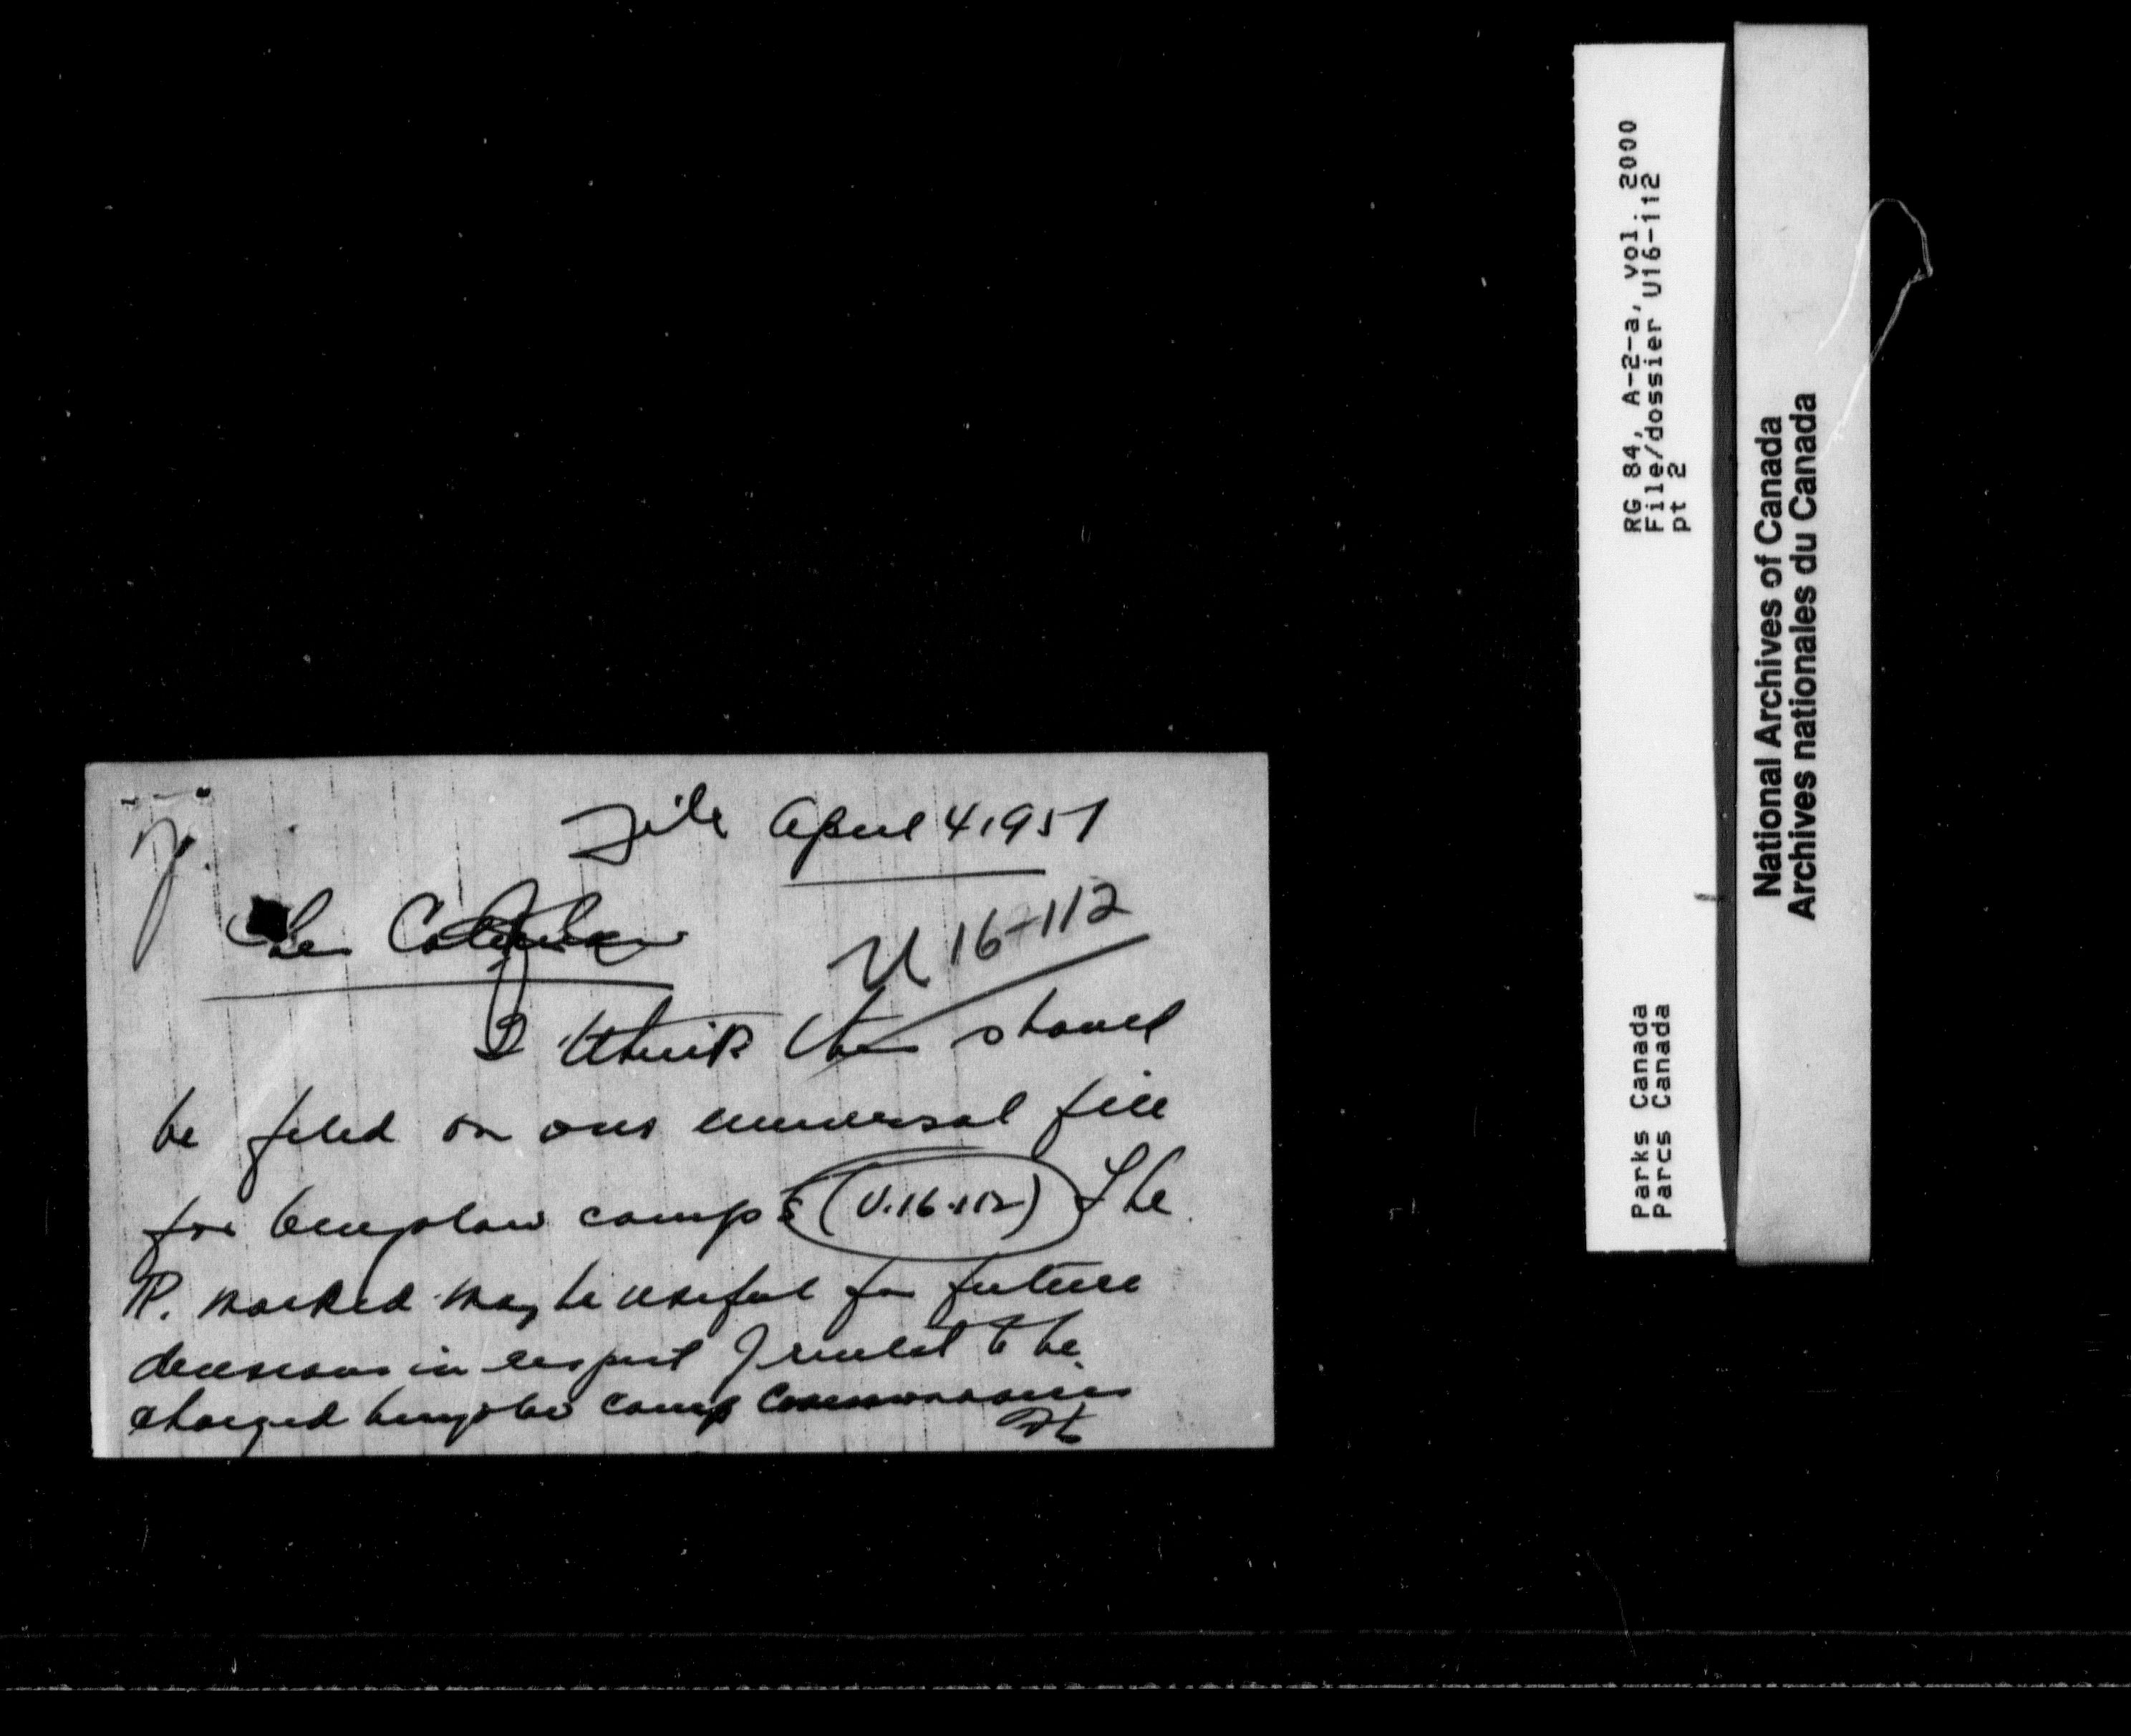 File April 4, 1951
U 16-112
I think this should
be filed on our universal file
for bungalow camps (U.16.112) The
P. marked may be useful for future
decisions in respect of rental to be
charged bungalow camp concessionaires
RG 84, A-2-a, vol. 2000
File/dossier U16-112
pt 2
Parks Canada
Parcs Canada
National Archives of Canada
Archives nationales du Canada